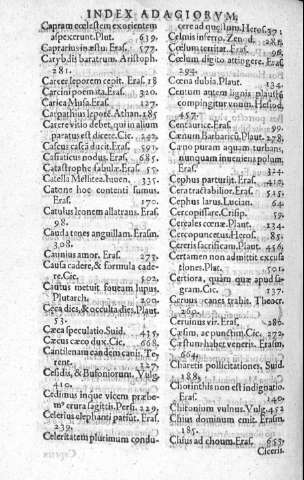 INDEX ADAGIORVM,
Capram cœlestem exorientem
aspexerunt. Plut. 619.
Caprarius in æstu. Eras. 577.
Carybdis baratrum. Aristoph.
281.
Career leporem cepit. Eras. 18
Carcini poemata. Eras. 320.
Carica Musa. Eras. 127.
Carpathius lepore. Athan. 185
Carere vitio debet, qui in alium
paratus est dicere. Cic.
Cascus cascā ducit. Eras. 591.
Casiaticus nodus. Eras. 685.
Catastrophe fabulæ. Eras. 57.
Catella Mellitea. Iuuen. 335.
Catone hoc contenti sumus.
Eras. 170.
Catulus leonem allatrans. Eras.
98.
Cauda tenes anguillam. Erasm.
308.
Caunius amor. Eras. 273.
Causa cadere, & formula cade-
re. Cic. 502.
Cautus metuit foueam lupus.
Plutarch. 200.
Cæca dies, & occulta dies. Plaut.
53.
Cæca speculatio. Suid. 435.
Cæcus cæco dux. Cic. 668.
Cantilenam eandem canis. Te-
rent. 327.
Cesidis, & Busoniorum. Vulg.
410.
Cedimus inque vicem præbe-
mus crura sagittis. Persi. 229.
Celerius elephanti pariūt. Eras.
239.
Celeritatem plurimum condu-
cere ad quællum. Heros. 371
Celmis in ferro. Zenod. 281.
Cœlum territat. Eras. 98.
Cœlum digito attingere. Eras.
294.
Cœna dubia. Plaut. 134.
Centum autem ligna plaustri
compingitur vonum. Hesiod.
457.
Centaurice. Eras. 99.
Cœnum Barbaricū. Plaut. 278.
Cæno puram aquam turbans,
nunquam inuenies polum,
Eras. 324.
Cephus parturijt. Eras. 417.
Cera tractabilior. Eras. 525.
Cephus larus. Lucian. 64.
Cercopissare. Crisip. 59.
Cereales cœnæ. Plaut. 234.
Cercopum cœtus. Heros. 85.
Cereris sacrificam. Plaut. 456.
Certamen non admittit excusa
tiones. Plat. 501.
Certiora, quam quæ apud sa-
gram. Cic. 137.
Ceruus canes trahit. Theocr.
269.
Ceruinus vir. Eras. 286.
Cæsim, ac punctim. Cic. 272.
Cæstum habet veneris. Erasm.
664.
Charetis pollicitationes. Suid.
188.
Chorinthis non est indignatio
Eras. 140.
Chironium vulnus. Vulg. 452
Chius dominum emit. Erasm.
151.
Chius ad choum. Eras. 653.
Ciceris.